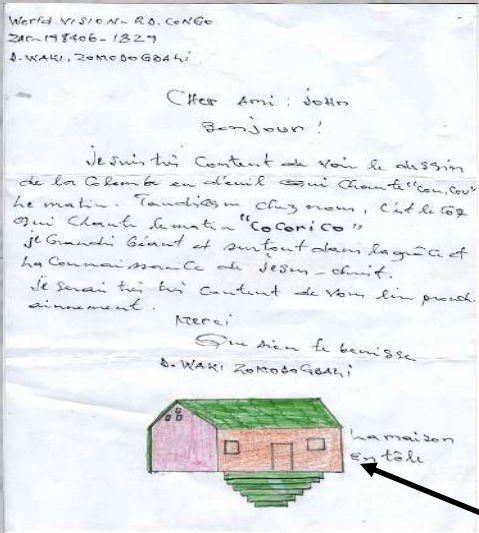 World VISION - RD. CONGO
ZAR-198406-1829
D. WAKI, ZOMODOGBAHI
Cher Ami : John
Bonjour !
Je suis très Content de voir le dessin
de la Colombe en deuil qui Chante "Cou, Cou"
Le matin. Tandisque chez nous, C'est le Coq
qui Chante le matin "COCORICO"
je Grandi Géant et surtout dans la grâce et
La Connaissance de Jésus-christ.
Je serai très très Content de vous lire proch-
ainnement.
Merci
Que Dieu te benisse
D. WAKI ZOMODOGBAHI
La maison
en tôle